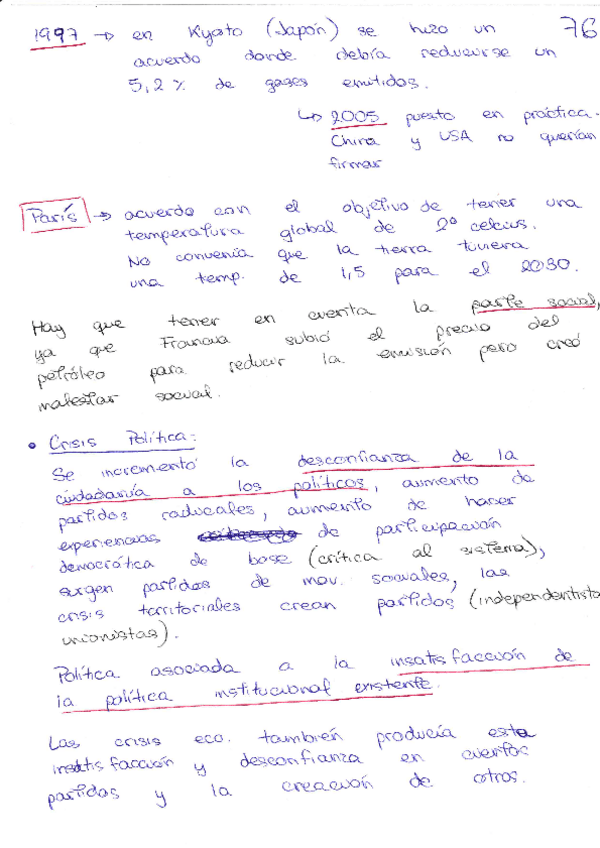 1997 → en Kyoto (Japón) se hizo un 76
acuerdo donde debía reducirse un
5,2 % de gases emitidos.
↳ 2005 puesto en práctica.
China y USA no querían
firmar
París → acuerdo con el objetivo de tener una
temperatura global de 2º celcius.
No convenía que la tierra tuviera
una temp. de 1,5 para el 2030.
Hay que tener en cuenta la parte social,
ya que Francia subió el precio del
petróleo para reducir la emisión pero creó
malestar social.
• Crisis Política:
Se incrementó la desconfianza de la
ciudadanía a los políticos, aumento de
partidos radicales, aumento de haner
experiencias de participación
democrática de base (crítica al sistema),
surgen partidos de mov. sociales, las
crisis territoriales crean partidos (independentisto
unionistas).
Política asociada a la insatisfacción de
la política institucional existente.
Las crisis eco. también producía esta
insatisfacción y desconfianza en ciertos
partidos y la creación de otros.